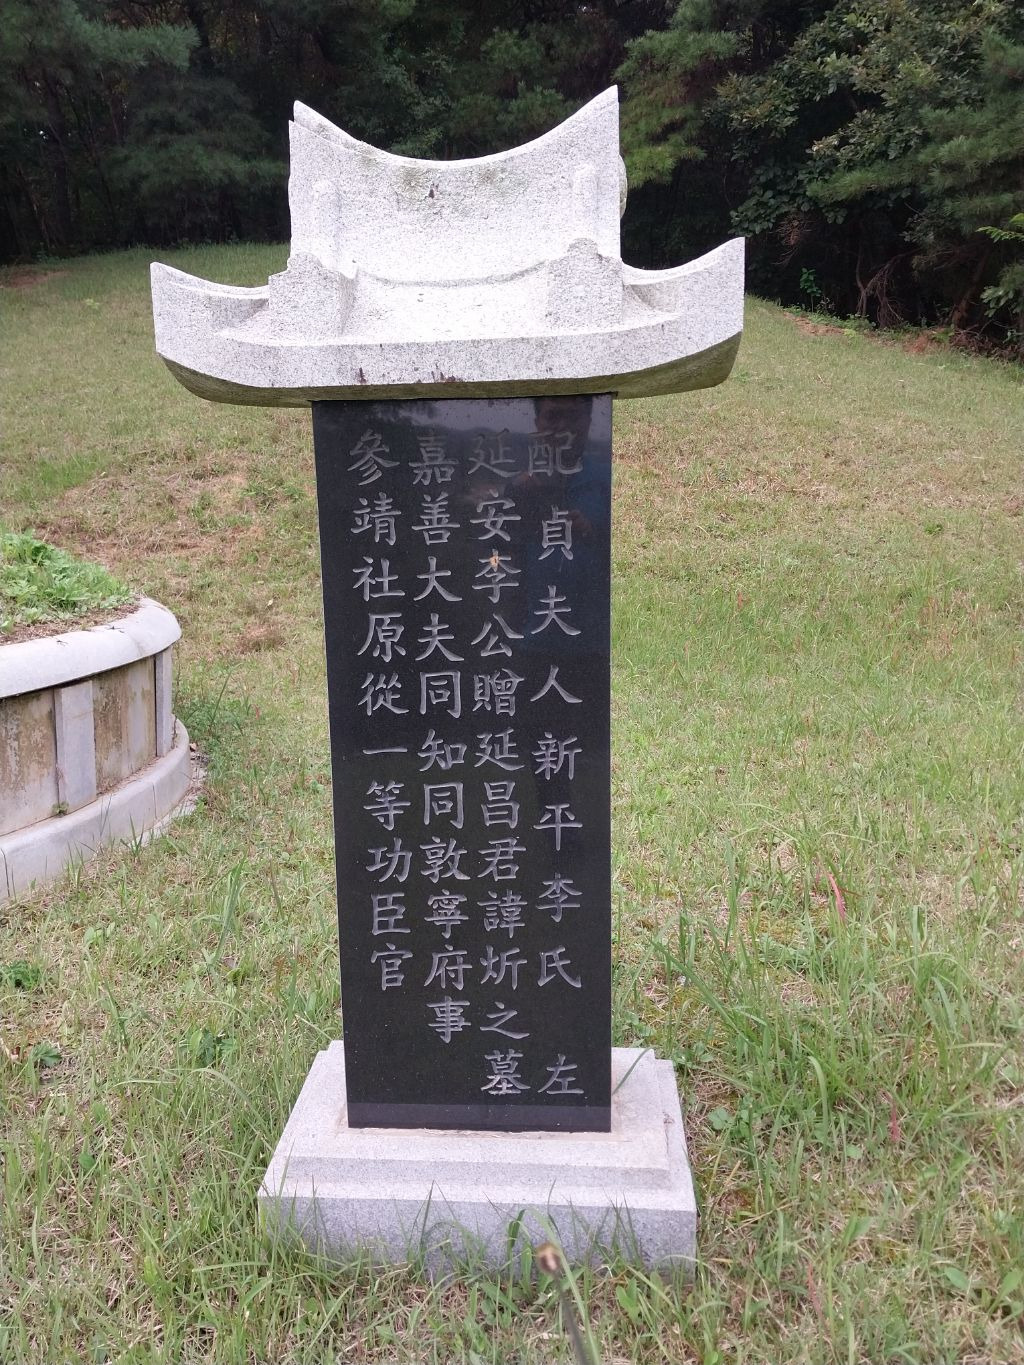 參靖社原從一等功臣官
嘉善大夫同知同敦寧府事
延安李公贈延昌君諱炘之墓
配 貞夫人新平李氏 左